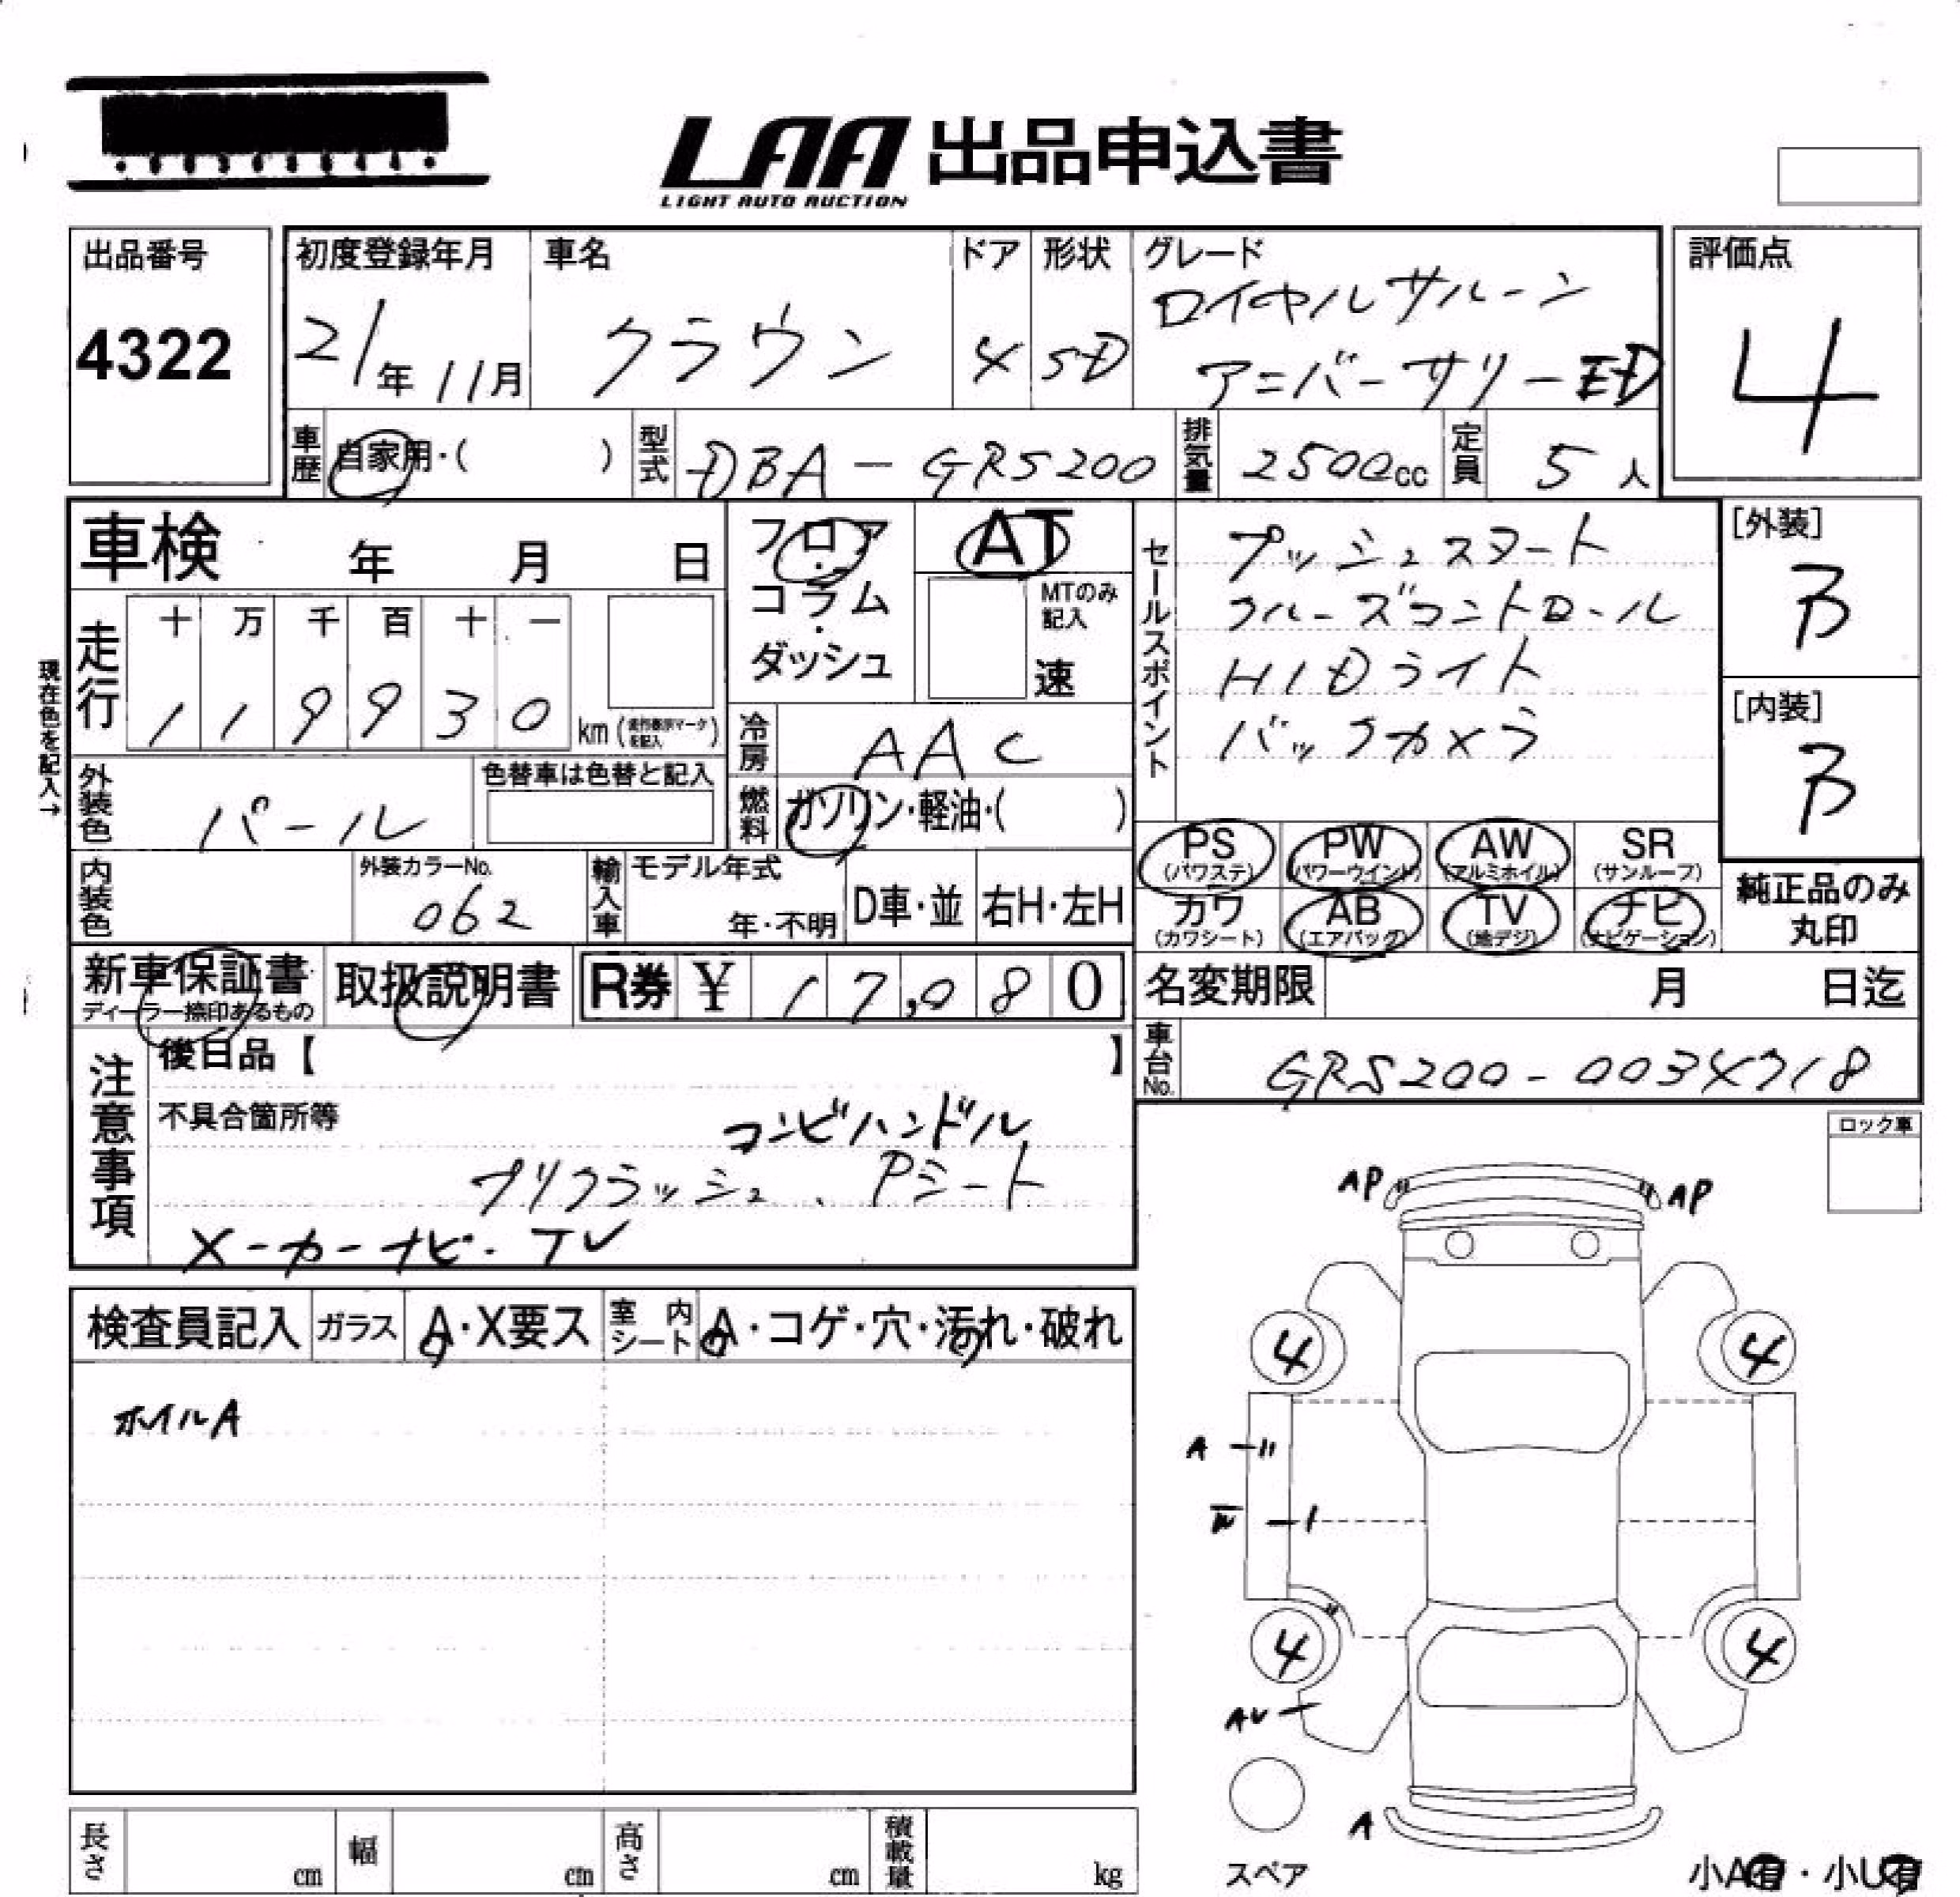 LAA 出品申込書
LIGHT AUTO AUCTION
出品番号 4322
初度登録年月 21年11月
車名 クラウン
ドア 4
形状 SD
グレード ロイヤルサルーン
アニバーサリーED
評価点 4
車歴 自家用・( )
型式 DBA-GRS200
排気量 2500cc
定員 5人
車検 年 月 日
フロア・コラム・ダッシュ
AT
MTのみ記入
速
セールスポイント
プッシュスタート
クルーズコントロール
HIDライト
バックカメラ
[外装] B
[内装] B
現在色を記入→
走行 十 万 千 百 十 一
1 1 9 9 3 0 km(走行表示マークを記入)
冷房 AAC
燃料 ガソリン・軽油・( )
外装色 パール
色替車は色替と記入
内装色
外装カラーNo. 062
輸入車 モデル年式 年・不明
D車・並 右H・左H
PS (パワステ) PW (パワーウインド) AW (アルミホイル) SR (サンルーフ)
カワ (カワシート) AB (エアバッグ) TV (地デジ) ナビ (ナビゲーション)
純正品のみ丸印
新車保証書
ディーラー捺印あるもの
取扱説明書
R券 ¥ 17,080
名変期限 月 日迄
車台No. GRS200-0034718
注意事項
後日品【 】
不具合箇所等
コンビハンドル
プリクラッシュ、Pシート
メーカーナビ・TV
ロック車
検査員記入 ガラス A・X要ス 室内シート A・コゲ・穴・汚れ・破れ
ホイルA
AP AP
4 4
A
W
4 4
AU
A
スペア
長さ cm 幅 cm 高さ cm 積載量 kg
小A有・小U有